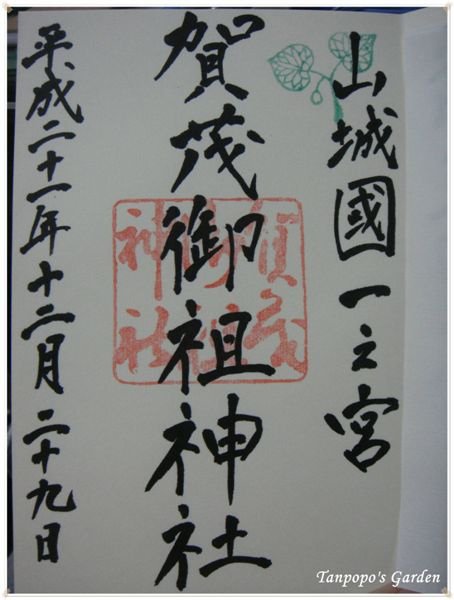 山城國一之宮
賀茂御祖神社
平成二十一年十二月二十九日
賀茂御祖神社
Tanpopo's Garden